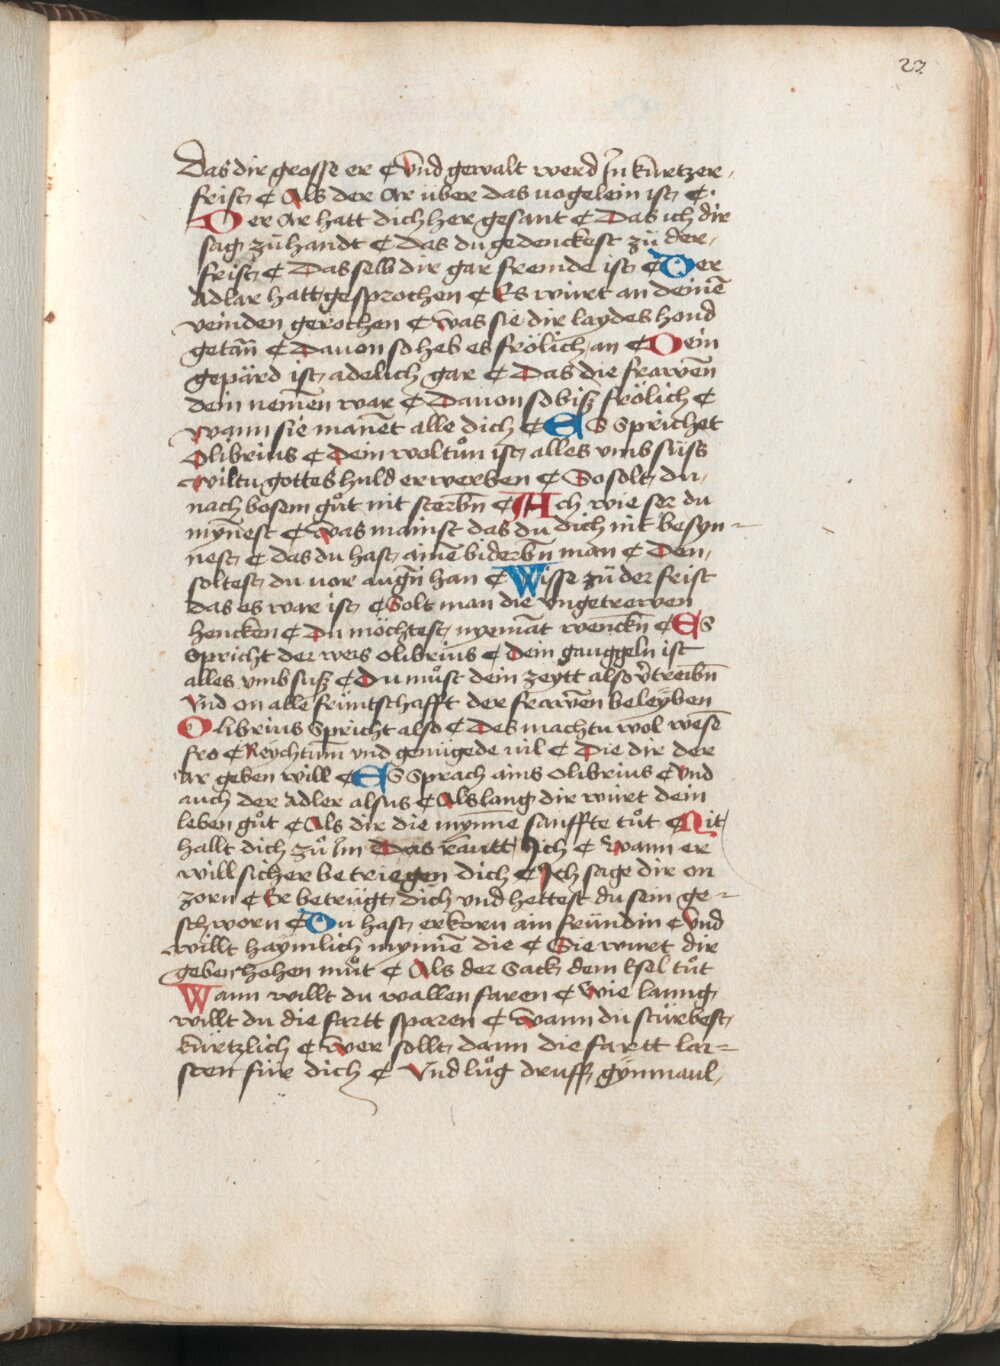 27
Das dir grosse er ¢ Vnd gewalt werd In kürtzer
frist ¢ Als der Ar über das uogelein ist ¢
Der Ar hatt dich her gesant ¢ Das ich dir
sag zů handt ¢ Das du gedenckest zů der
frist ¢ Das selb dir gar fremde ist ¢ Der
Adlar hatt gesprochen ¢ Es würt an deinē
veinden gerochen ¢ was sie dir laydes hond
getān ¢ Dauon so heb es frölich an ¢ Dein
gepärd ist adelich gar ¢ Das die frawen
dein nemen war ¢ Dauon so biß frölich ¢
wann sie manēt alle dich ¢ ES sprichet
Olibrius ¢ Dein woltůn ist alles vmb süss
wiltu gottes huld erwerben ¢ So solt du
nach bosem gůt nit sterbn̄ ¢ Ach wie ser du
myn̄est ¢ was mainst das du dich nit besyn=
nest ¢ das du hast ainē biderbn̄ man ¢ Den
soltest du vor augn̄ han ¢ Wisse zů der frist
das es war ist ¢ Solt man die vngetrewen
hencken ¢ Du möchtest nyemāt wenckn̄ ¢ ES
spricht der weis Olibrius ¢ dein gauggeln ist
alles vmb suß ¢ Du můst dein zeytt also v̄treibn̄
Vnd on alle früntschafft der frawēn beleyben
Olibrius spricht also ¢ Des machtu wol wesē
fro ¢ Reychtum̄ vnd genügede vil ¢ Die dir der
ar geben will ¢ ES sprach ains Olibrius ¢ Vnd
auch der Adler alsus ¢ Als lang dir würt dein
leben gůt ¢ Als dir die myn̄ne sanffte tůt ¢ Nit
hallt dich zů Im Das ratt Ich ¢ wann er
will sicher betriegen dich ¢ Ich sage dir on
zorn ¢ Er betrügt dich vnd hettest du sein ge=
schworn ¢ Du hast erkorn ain fründin ¢ Vnd
willt haymlich mynnē die ¢ Sie würt dir
geben hohen můt ¢ Als der Sack dem Esel tůt
Wann willt du wallen faren ¢ Wie lanng
willt du die fartt sparen ¢ Wann du stürbest
kürtzlich ¢ Wer sollt dann die fartt lai=
sten für dich ¢ Vnd lůg druff gynmaul